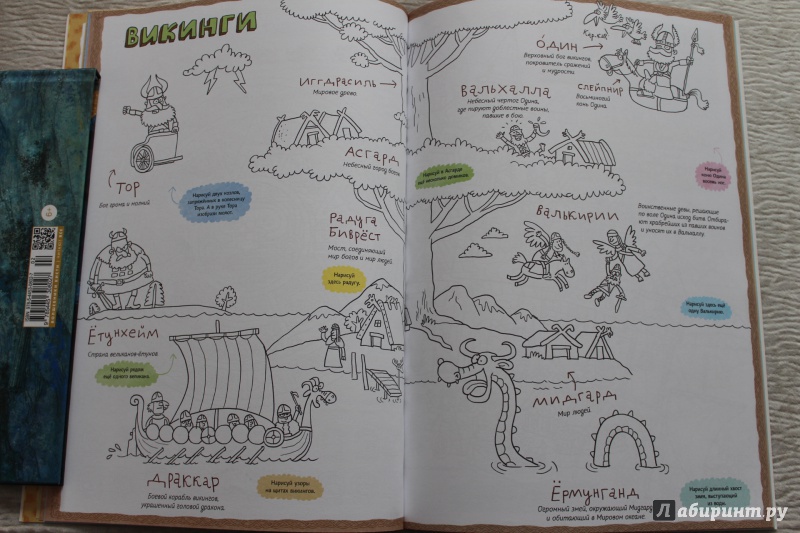 ВИКИНГИ
ИГГДРАСИЛЬ
Мировое древо.
АСГАРД
Небесный город богов
ТОР
Бог грома и молний
Нарисуй двух козлов,
запряжённых в колесницу
Тора. А в руке Тора
изобрази молот.
РАДУГА
БИВРЁСТ
Мост, соединяющий
мир богов и мир людей
Нарисуй
здесь радугу.
ЁТУНХЕЙМ
Страна великанов-ётунов
Нарисуй рядом
ещё одного великана.
ДРАККАР
Боевой корабль викингов,
украшенный головой дракона.
Нарисуй узоры
на щитах викингов.
О́ДИН
Верховный бог викингов,
покровитель сражений
и мудрости.
СЛЕЙПНИР
Восьминогий
конь Одина.
ВАЛЬХАЛЛА
Небесный чертог Одина,
где пируют доблестные воины,
павшие в бою.
Нарисуй в Асгарде
ещё несколько домиков.
Нарисуй
коню Одина
восемь ног.
ВАЛЬКИРИИ
Воинственные девы, решающие
по воле Одина исход битв. Отбира-
ют храбрейших из павших воинов
и уносят их в Вальхаллу.
Нарисуй здесь ещё
одну Валькирию.
МИДГАРД
Мир людей.
ЁРМУНГАНД
Огромный змей, окружающий Мидгард
и обитающий в Мировом океане.
Нарисуй длинный хвост
змея, выступающий
из воды.
Лабиринт.ру